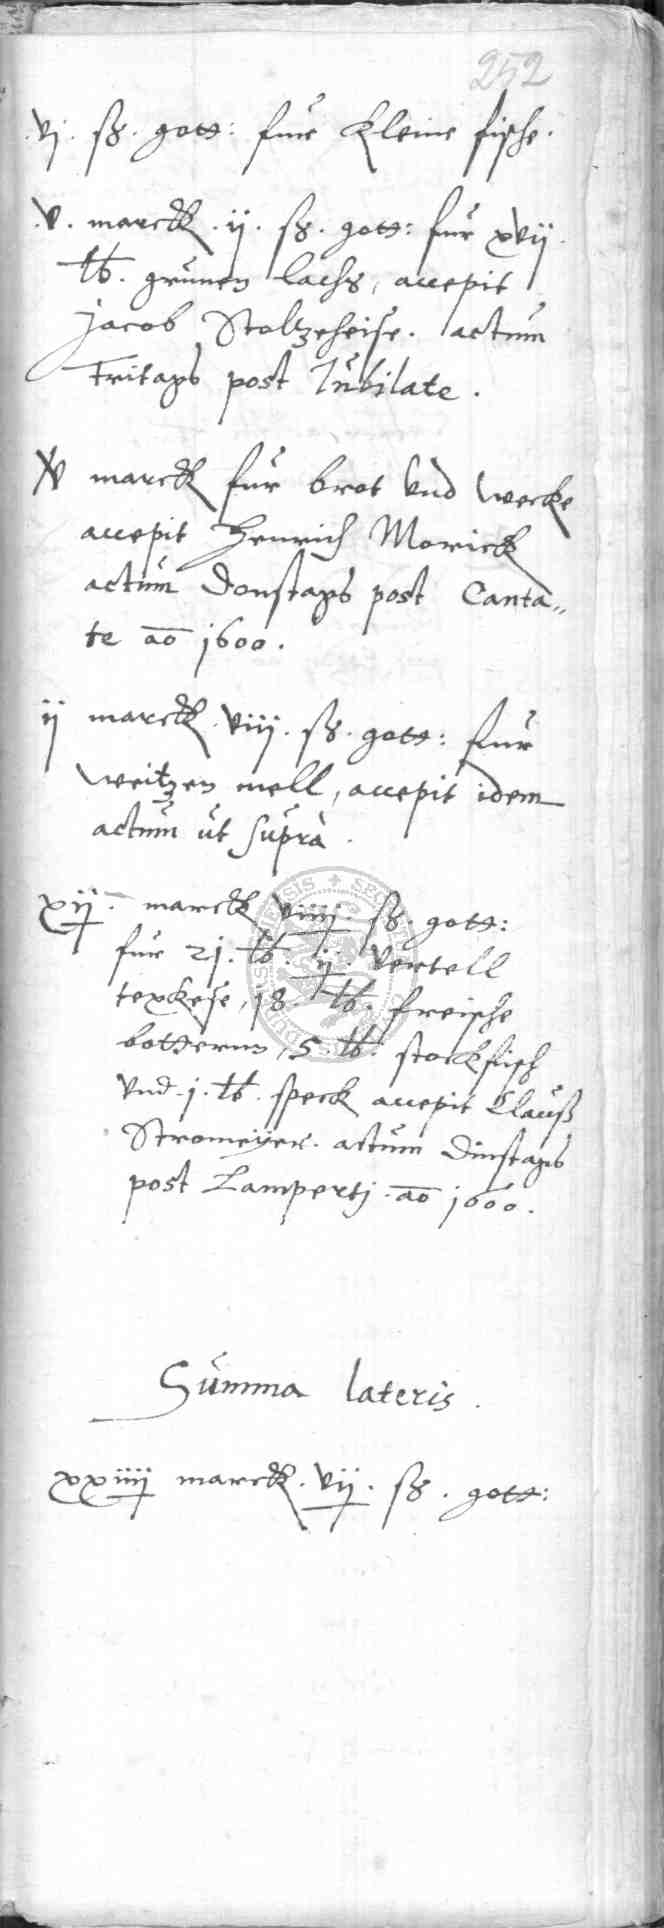 252
vj. sß. gott: fuͤr kleine fische.
v. marck. ij. sß. gott: fuͤr xvij.
lb. gruͤnen lachs, accepit
Jacob Stoltzeheise. actum
Fritags post Jubilate.
v marck fuͤr brot vnd wecke
accepit Henrich Morick
actum Donstags post Canta„
te ao 1600.
ij marck. viij. sß. gott: fuͤr
weitzen mell, accepit idem
actum ut supra.
xij. marck viiij. sß. gott:
fuͤr 21. lb. ij. vertell
texkese, 18. lb. freische
botteren, 5. lb. stockfisch
vnd. j. lb. speck accepit Clauß
Stromeyer. actum Dinstags
post Lamperti. ao 1600.
Summa lateris.
xxiiij marck. vij. sß. gott: